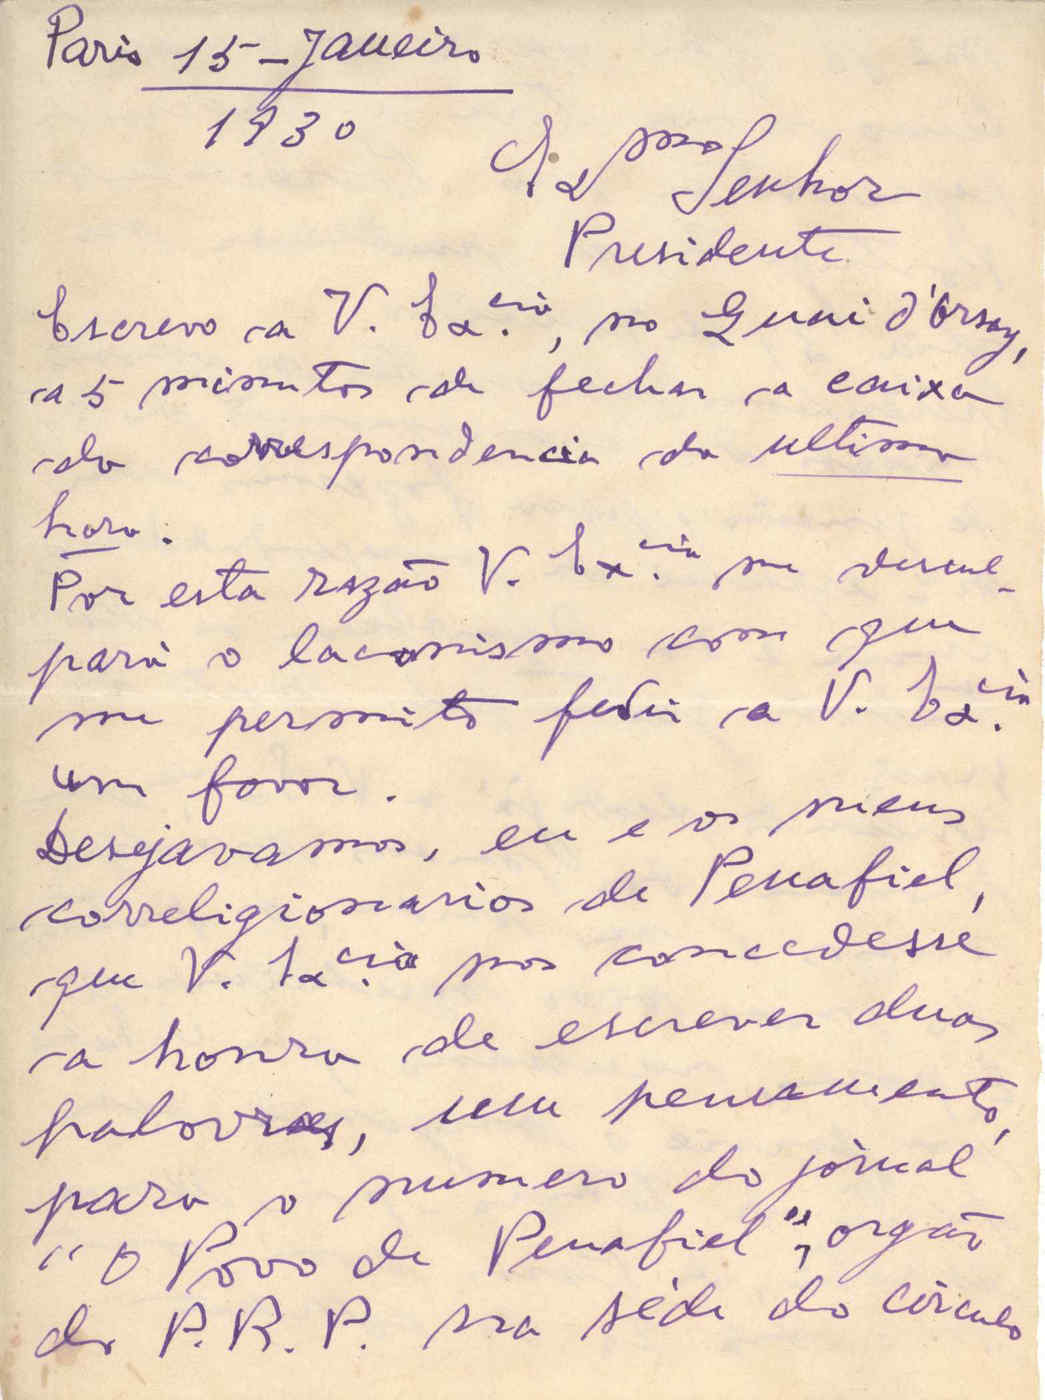 Paris 15-Janeiro
1930
Ex.mo Senhor
Presidente
Escrevo a V. Ex.cia, no Quai d'Orsay,
a 5 minutos de fechar a caixa
da correspondencia da ultima
hora.
Por esta razão V. Ex.cia me descul-
pará o laconismo com que
me permito pedir a V. Ex.cia
um favor.
Desejavamos, eu e os meus
correligionarios de Penafiel,
que V. Ex.cia nos concedesse
a honra de escrever duas
palavras, um pensamento,
para o numero do jornal
"O Povo de Penafiel", orgão
do P. R. P. na séde do circulo